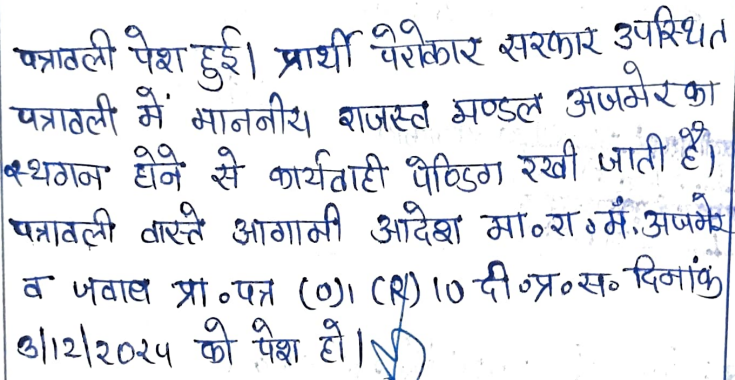 पत्रावली पेश हुई। प्रार्थी पेरोकार सरकार उपस्थित
पत्रावली में माननीय राजस्व मण्डल अजमेर का
स्थगन होने से कार्यवाही पेण्डिंग रखी जाती है।
पत्रावली वास्ते आगामी आदेश मा०रा०मं. अजमेर
व जवाब प्रा०पत्र (O)1 (R) 10 दी०प्र०स० दिनांक
3/12/2024 को पेश हो।